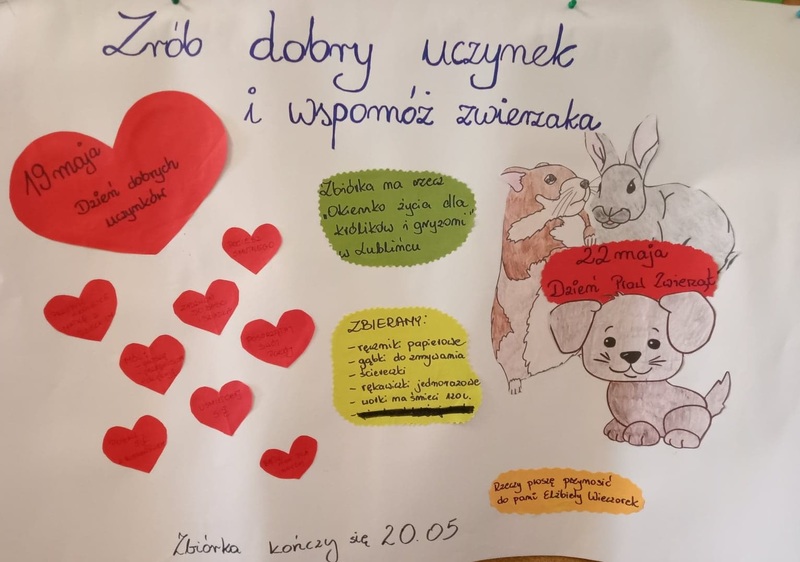 Zrób dobry uczynek
i wspomóż zwierzaka
19 maja
Dzień dobrych
uczynków
Zbiórka na rzecz
"Okienko życia dla
królików i gryzoni"
w Lublińcu
22 maja
Dzień Praw Zwierząt
ZBIERAMY:
- ręczniki papierowe
- gąbki do zmywania
- ściereczki
- rękawiczki jednorazowe
- worki na śmieci 120 l.
Rzeczy proszę przynosić
do pani Elżbiety Wieczorek
Zbiórka kończy się 20.05